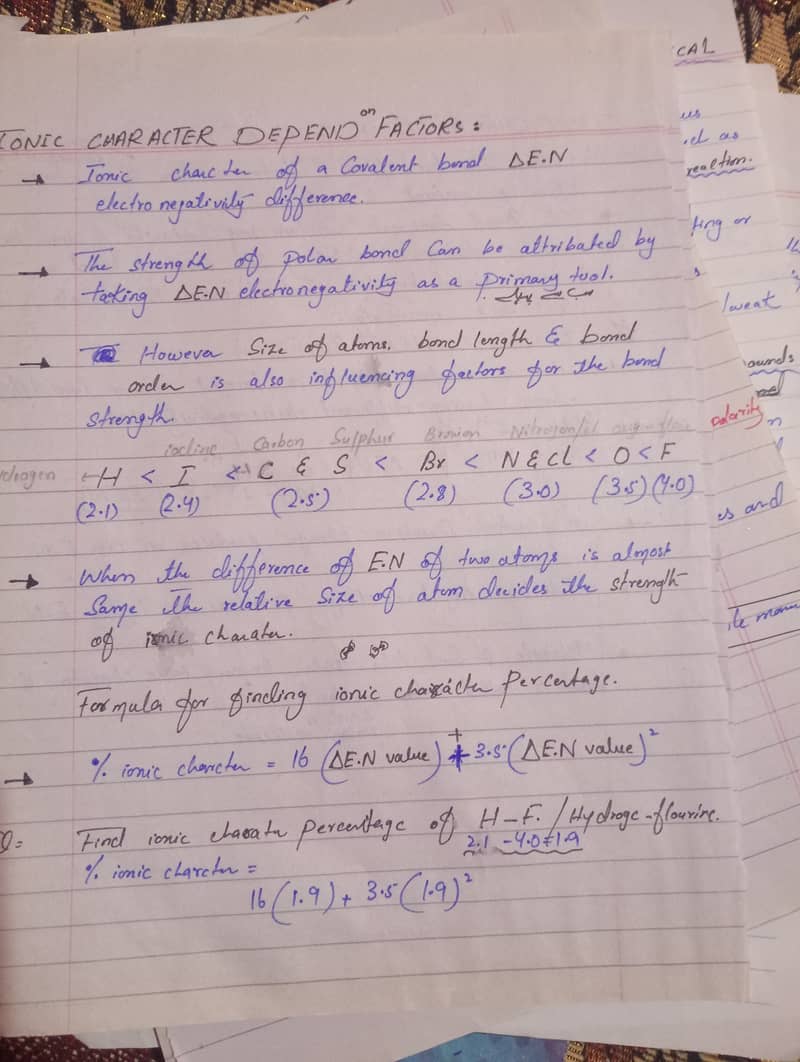 IONIC CHARACTER DEPEND on FACTORS:
→ Ionic charcter of a Covalent bond ΔE.N
electronegativity difference.
→ The strength of polar bond Can be attributed by
taking ΔE.N electronegativity as a primary tool.
→ However Size of atoms, bond length & bond
order is also influencing factors for the bond
strength.
iodine Carbon Sulphur
H < I < C & S < Br < N & Cl < O < F
(2.1) (2.4) (2.5) (2.8) (3.0) (3.5) (4.0)
→ When the difference of E.N of two atoms is almost
Same the relative Size of atom decides the strength
of ionic charater.
Formula for finding ionic character Percentage.
→ % ionic charcter = 16 (ΔE.N value) + 3.5 (ΔE.N value)²
Q= Find ionic Percentage of H-F. / Hydroge-flourine.
2.1 - 4.0 = 1.9
% ionic charcter =
16 (1.9) + 3.5 (1.9)²
CAL
us
as
realtion.
ting or
weat
ounds
polarity
n
es and